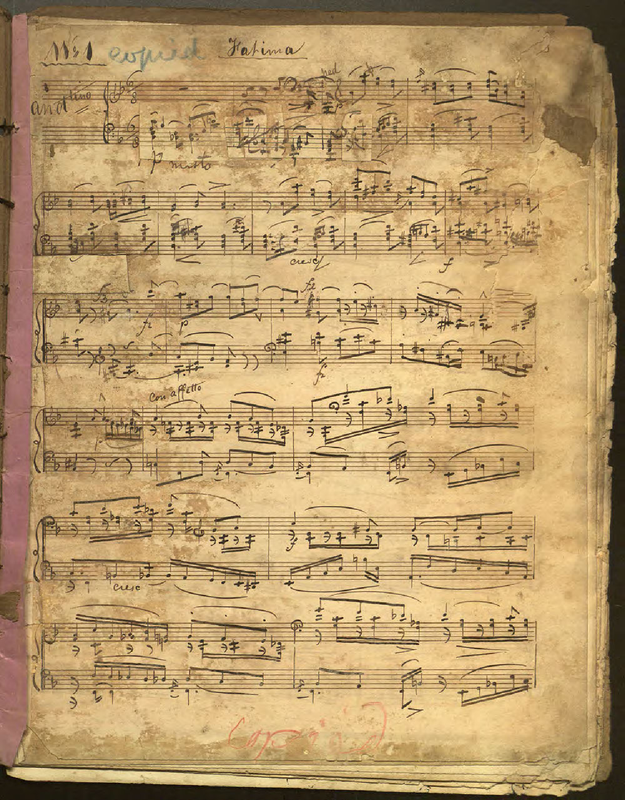 No 1 copied Fatima
Andtino
p molto
cresc
f
fz p fz
fz
con affetto
p
cresc
copied